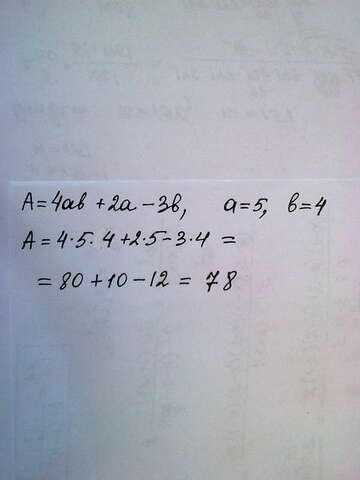 A=4ab+2a-3b, a=5, b=4
A=4·5·4+2·5-3·4=
=80+10-12=78